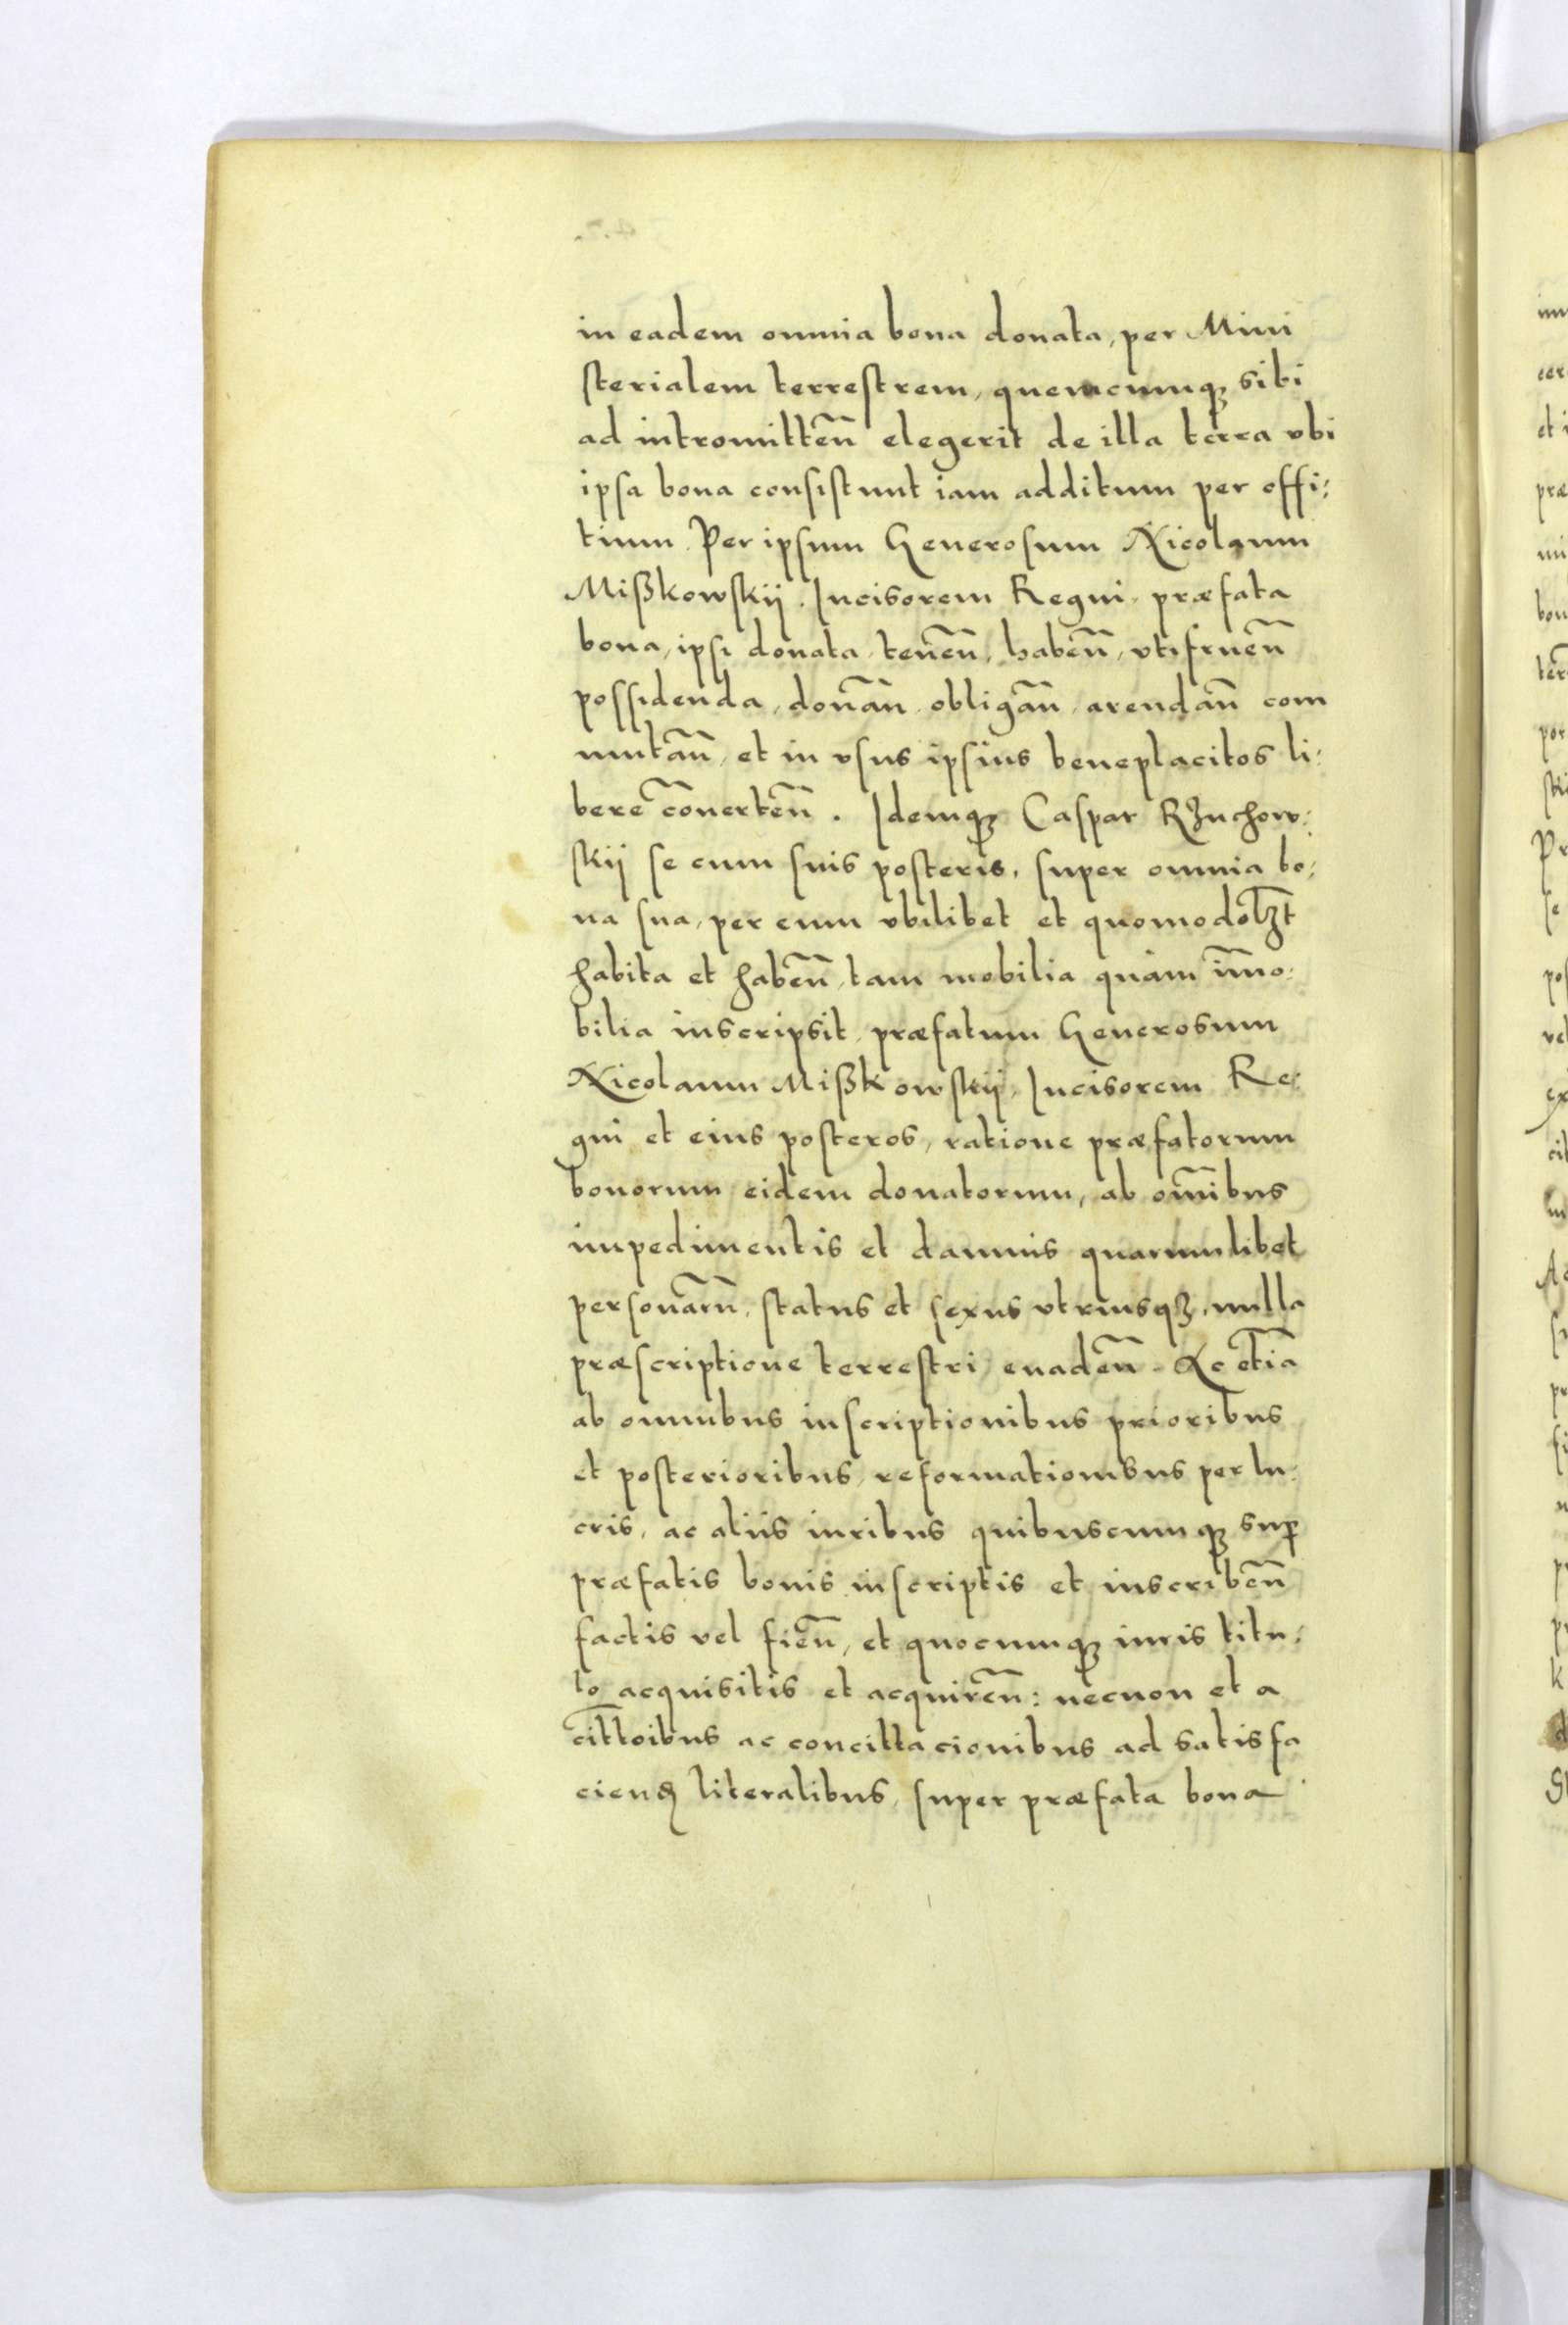 in eadem omnia bona donata, per Mini
sterialem terrestrem, quemcumqꝫ sibi
ad intromitten̄ elegerit de illa terra vbi
ipsa bona consistunt iam additum per offi:
tium. Per ipsum Generosum Nicolaum
Mißkowskij. Incisorem Regni. præfata
bona, ipsi donata, tenen̄, haben̄, vtifruen̄
possidenda, donan̄. obligan̄, arendan̄ com
mutan̄, et in vsus ipsius beneplacitos li:
bere cōuerten̄. Idemqꝫ Caspar Rzuchow:
skij se cum suis posteris, super omnia bo:
na sua, per eum vbilibet et quomodolꝫt
habita et haben̄, tam mobilia quàm īmo:
bilia inscripsit, præfatum Generosum
Nicolaum Mißkowskij, Incisorem Re:
gni et eius posteros, ratione præfatorum
bonorum eidem donatorum, ab om̄ibus
impedimentis et damnis quarumlibet
personarū, status et sexus vtriusqꝫ, nulla
præscriptione terrestri euaden̄. Ac etiā
ab omnibus inscriptionibus prioribus
et posterioribus, reformationibus per lu:
cris, ac aliis iuribus quibuscumqꝫ sup̄
præfatis bonis inscriptis et inscriben̄
factis vel fien̄, et quocumqꝫ iuris titu:
lo acquisitis et acquiren̄: necnon et a
citt̄oibus ac concittacionibus ad satisfa
ciend̄ literalibus, super præfata bona